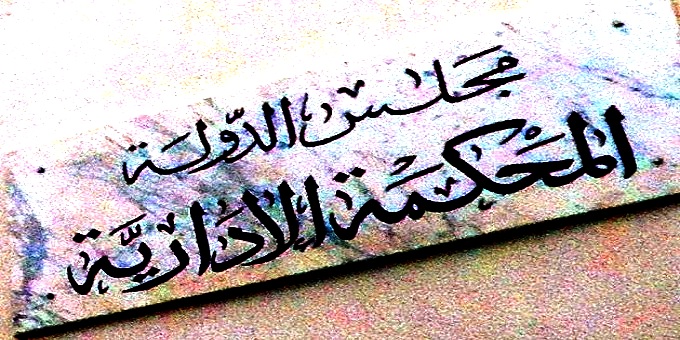 مجلس الدّولة
المحكمة الاداريَّة